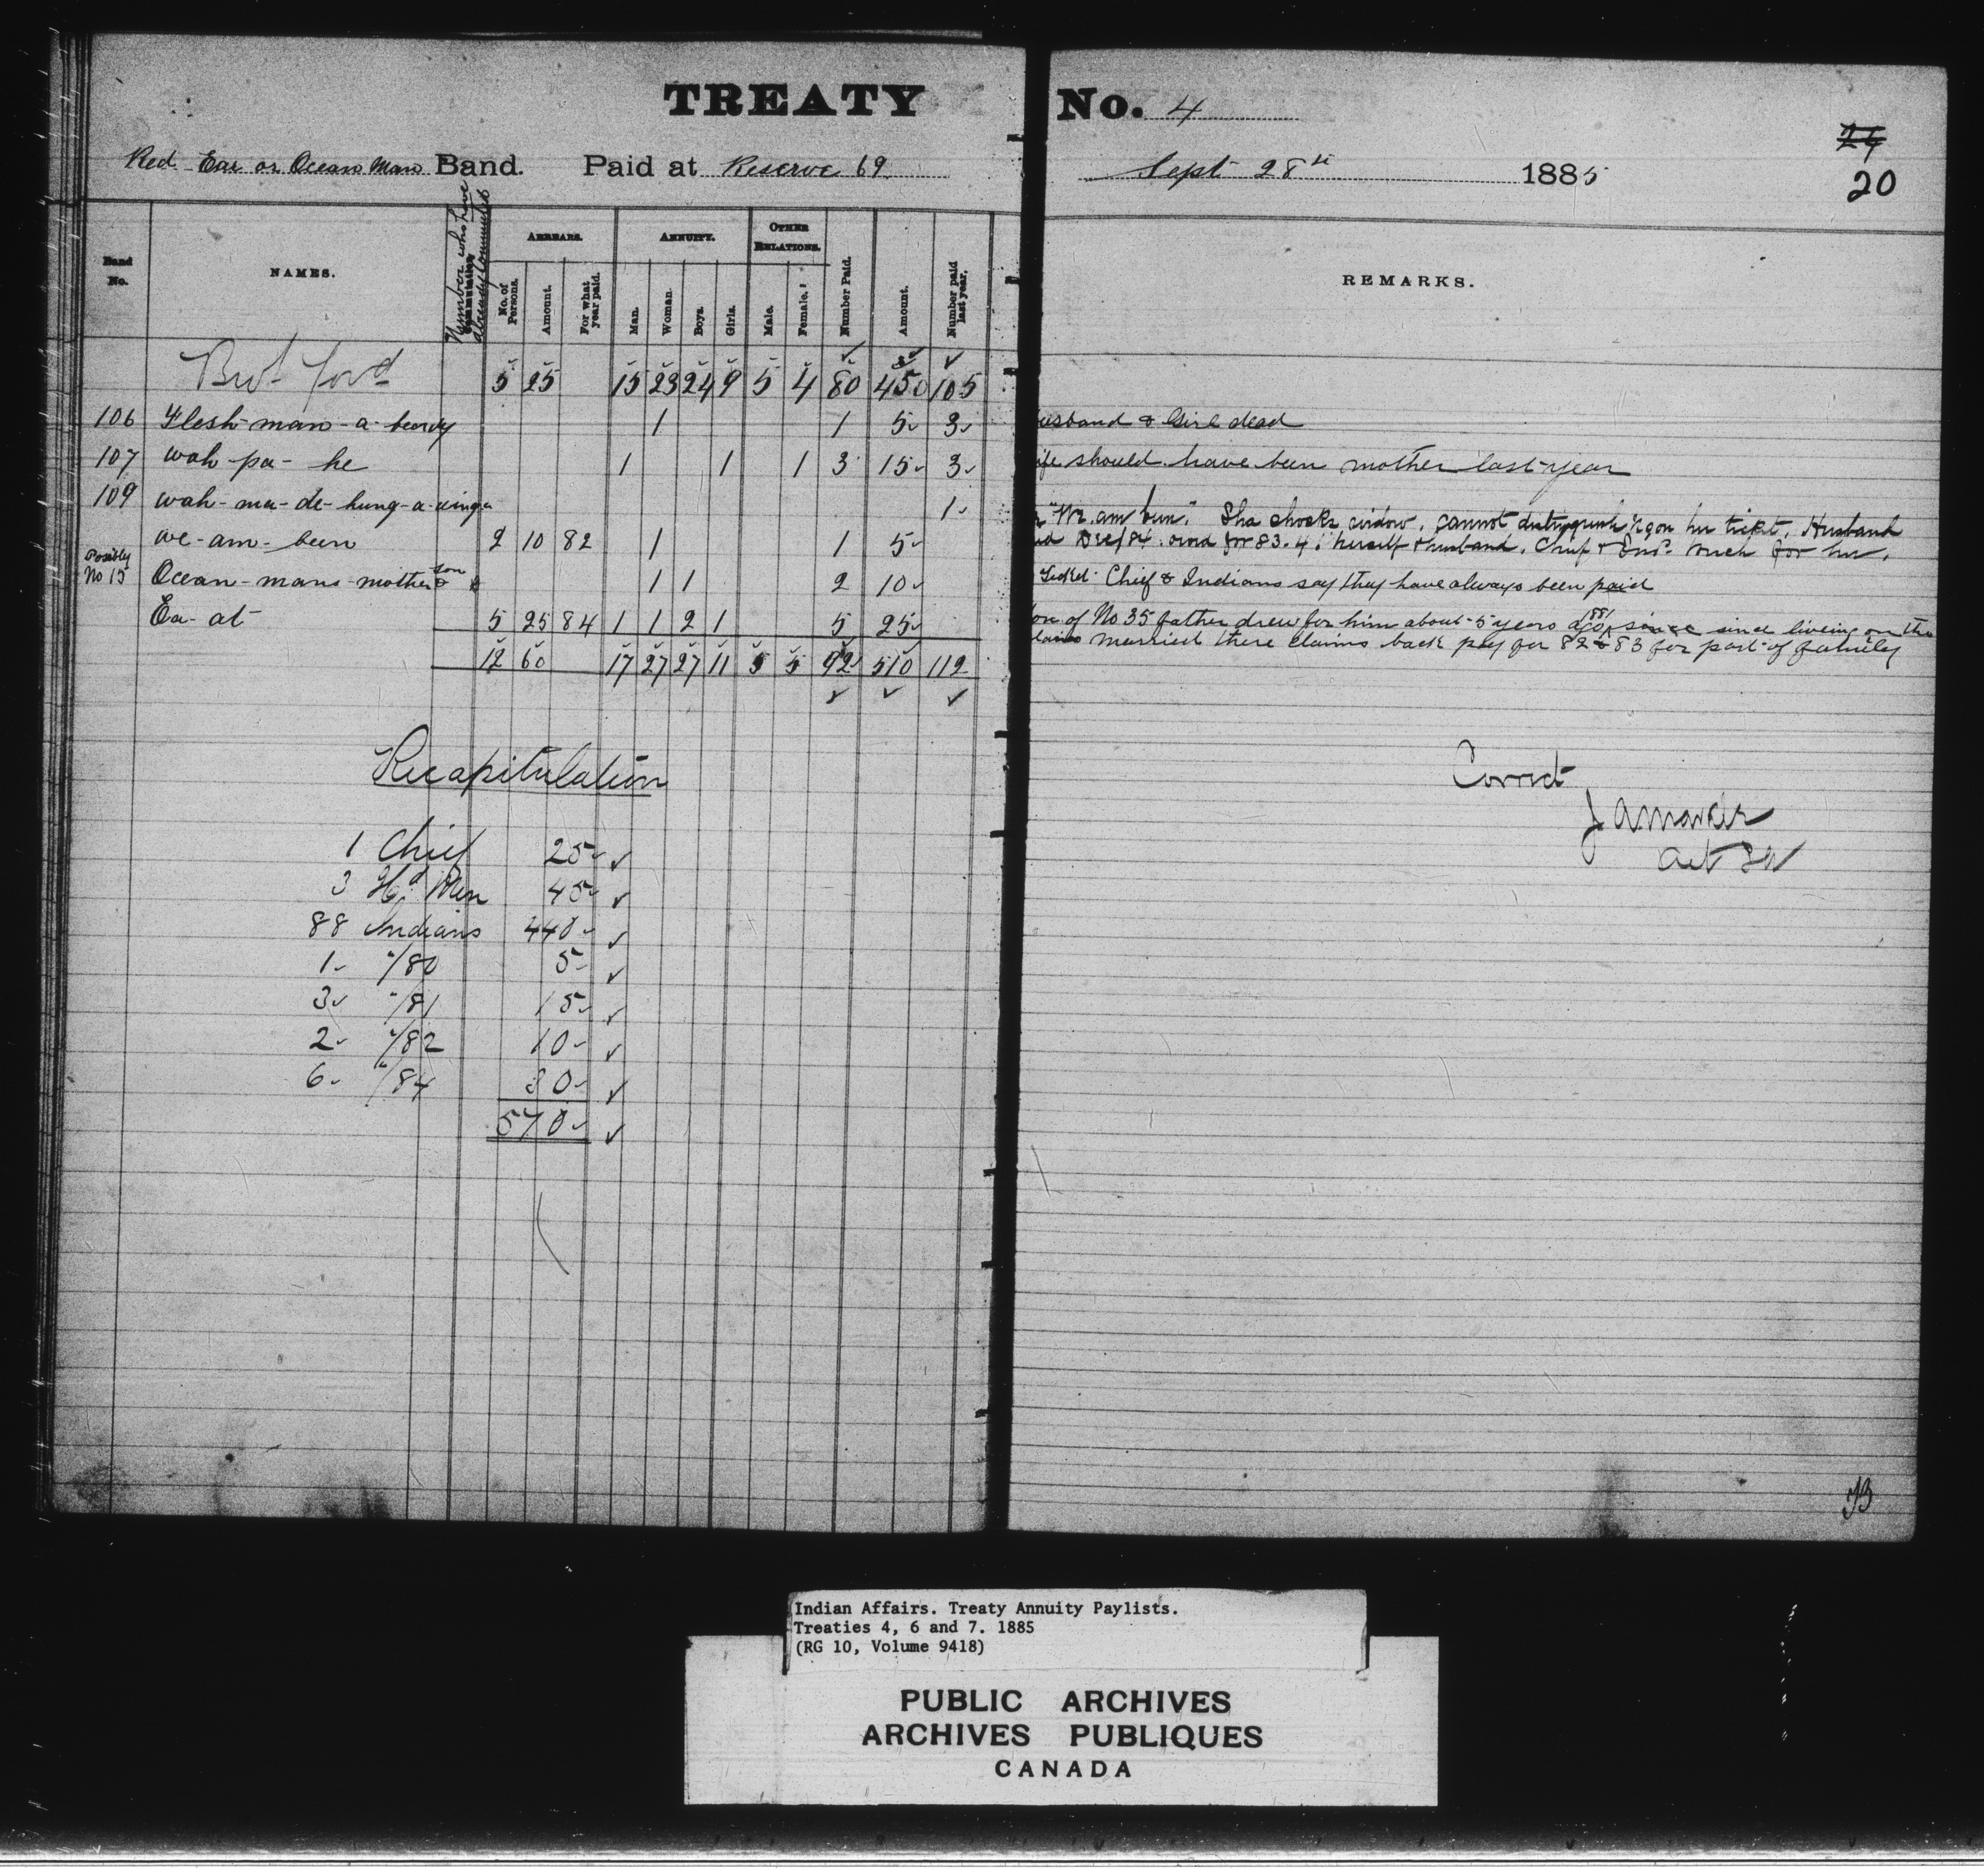 TREATY No. 4
Red Ear or Ocean Man Band. Paid at Reserve 69 Sept 28th 1885
24
20
Band No. NAMES. Number who have already Commuted ARREARS. ANNUITY. OTHER RELATIONS. Number Paid. Amount. Number paid last year. REMARKS.
No. of Persons. Amount. For what year paid. Man. Woman. Boys. Girls. Male. Female.
Brot Ford 5 25 15 23 24 9 5 4 80 450 105
106 Flesh-man-a-beardy 1 1 5 3 usband & Girl dead
107 wah-pa-he 1 1 1 3 15 3 ife should have been mother last year
109 wah-ma-de-hung-a-winga 1
we-am-been 2 10 82 1 1 5
"We am bun." Sha chocks widow, cannot distinguish Ngon her ticket, Husband
Dec/84. owed for 83.4. herself & husband. Chief & Inds. vouch for her.
Possibly No 15 Ocean-mans-mother & son 1 1 2 10 Ticket Chief & Indians say they have always been paid
Ea-at 5 25 84 1 1 2 1 5 25
on of No 35 father drew for him about 5 years ago 1881 since liveing on the
married there claims back pay for 82 & 83 for part of family
12 60 17 27 27 11 5 5 92 510 112
Recapitulation
1 Chief 25
3 Hd Men 45
88 Indians 440
1 "/80 5
3 "/81 15
2 "/82 10
6 "/84 30
570
Correct
Indian Affairs. Treaty Annuity Paylists.
Treaties 4, 6 and 7. 1885
(RG 10, Volume 9418)
PUBLIC ARCHIVES
ARCHIVES PUBLIQUES
CANADA